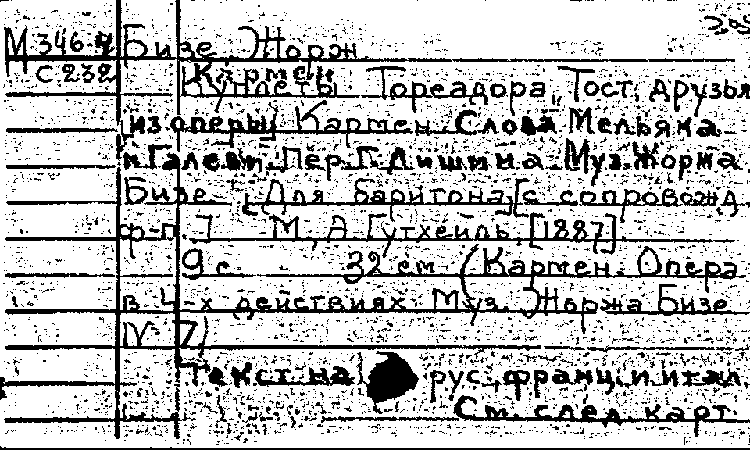 М 346.4 Бизе, Жорж
с. 232 Кармен
Куплеты Тореадора, Тост, друзья
"из оперы" Кармен. Слова Мельяка
и Галеви. Пер. Г. Лишина. Муз. Жоржа
Бизе. Для баритона [с сопровожд.
ф-п.] М., А. Гутхейль, [1887].
9 с. 32 см (Кармен. Опера
в 4-х действиях. Муз. Жоржа Бизе
№ 7)
Текст на рус., франц. и итал.
См. след. карт.